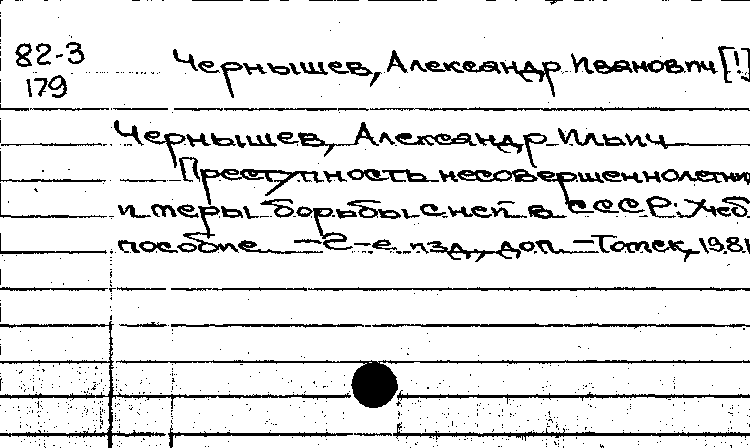 82-3
179
Чернышев, Александр Иванович [!]
Чернышев, Александр Ильич
Преступность несовершеннолетних
и меры борьбы с ней в СССР: Учеб.
пособие. - 2-е изд., доп. - Томск, 1981